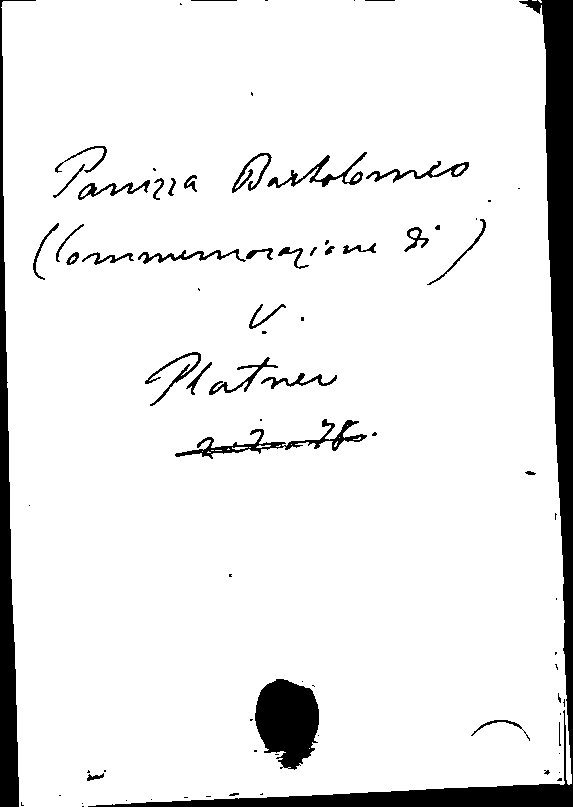 Panizza Bartolomeo
(Commemorazione di)
V.
Platner